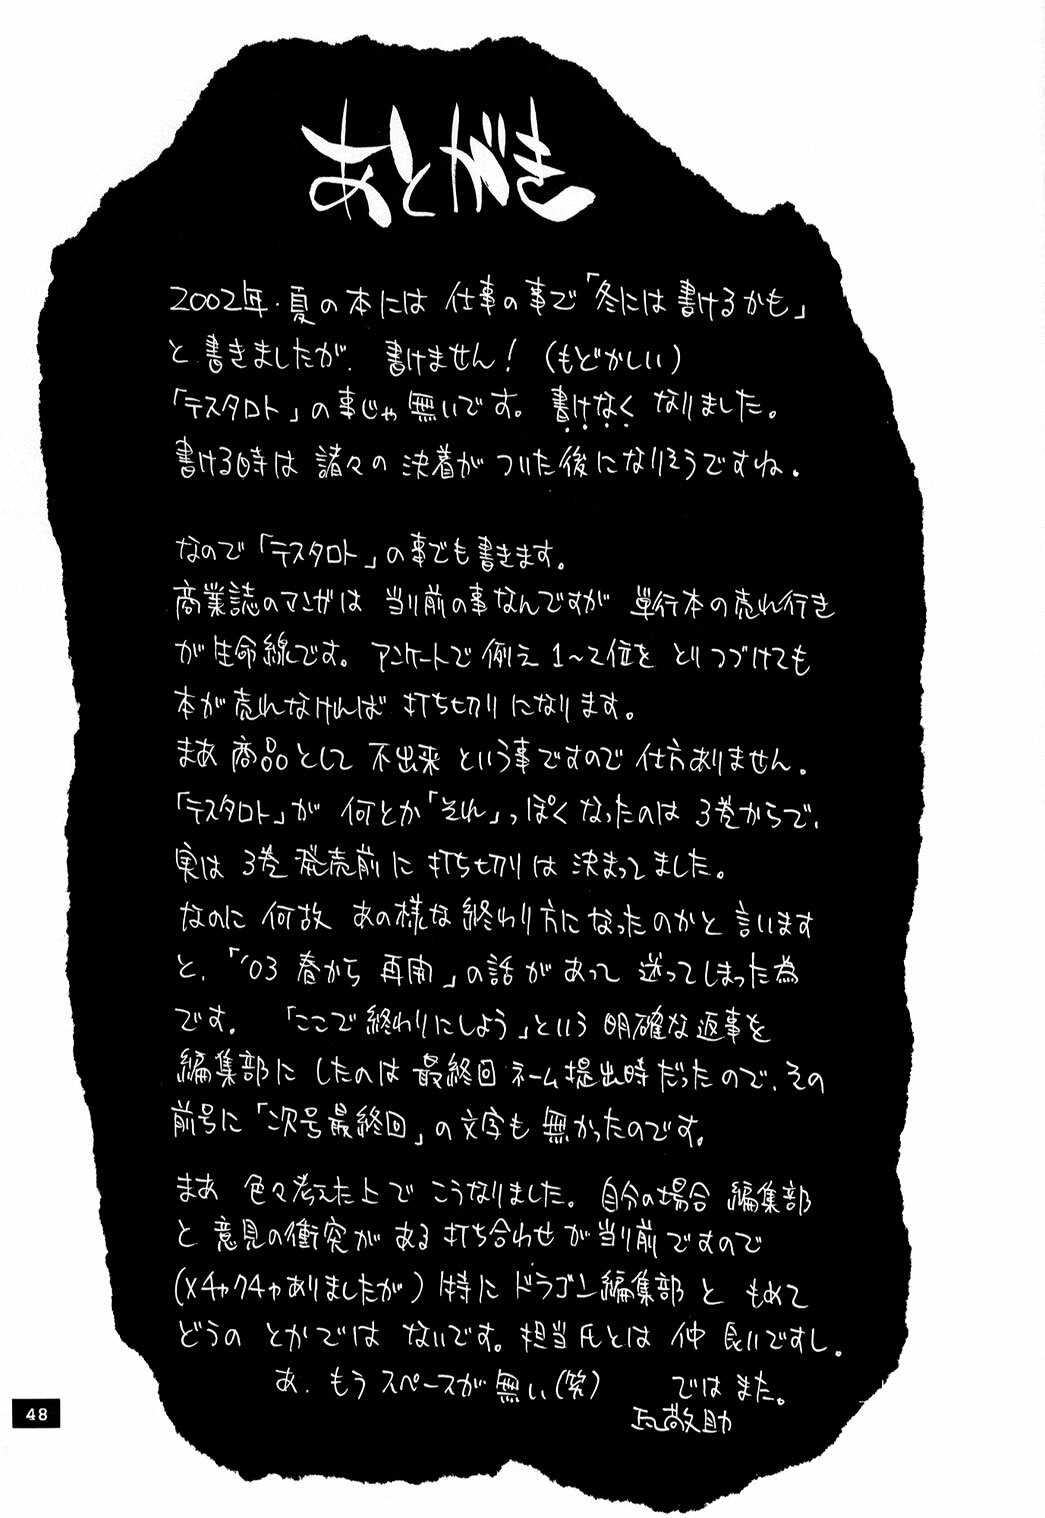 あとがき
2002年・夏の本には 仕事の事で「冬には書けるかも」
と書きましたが、書けません！（もどかしい）
「テスタロト」の事じゃ無いです。書けなくなりました。
書ける時は 諸々の決着が ついた後になりそうですね。
なので「テスタロト」の事でも書きます。
商業誌のマンガは 当り前の事なんですが 単行本の売れ行き
が生命線です。アンケートで例え 1〜2位を とりつづけても
本が売れなければ 打ち切りになります。
まあ 商品として 不出来 という事ですので 仕方ありません。
「テスタロト」が 何とか「それ」っぽくなったのは 3巻からで、
実は 3巻発売前に 打ち切りは 決まってました。
なのに 何故 あの様な終わり方になったのかと言います
と、「'03 春から 再開」の話があって 迷ってしまった為
です。「ここで終わりにしよう」という 明確な返事を
編集部に したのは 最終回 ネーム提出時だったので、その
前号に「次号最終回」の文字も 無かったのです。
まあ 色々考えた上で こうなりました。自分の場合 編集部
と 意見の衝突が ある 打ち合わせが当り前ですので
（メチャクチャありましたが）特に ドラゴン編集部と もめて
どうの とかでは ないです。担当氏とは 仲良いですし。
あ、もうスペースが無い（笑） ではまた。
三部敬助
48